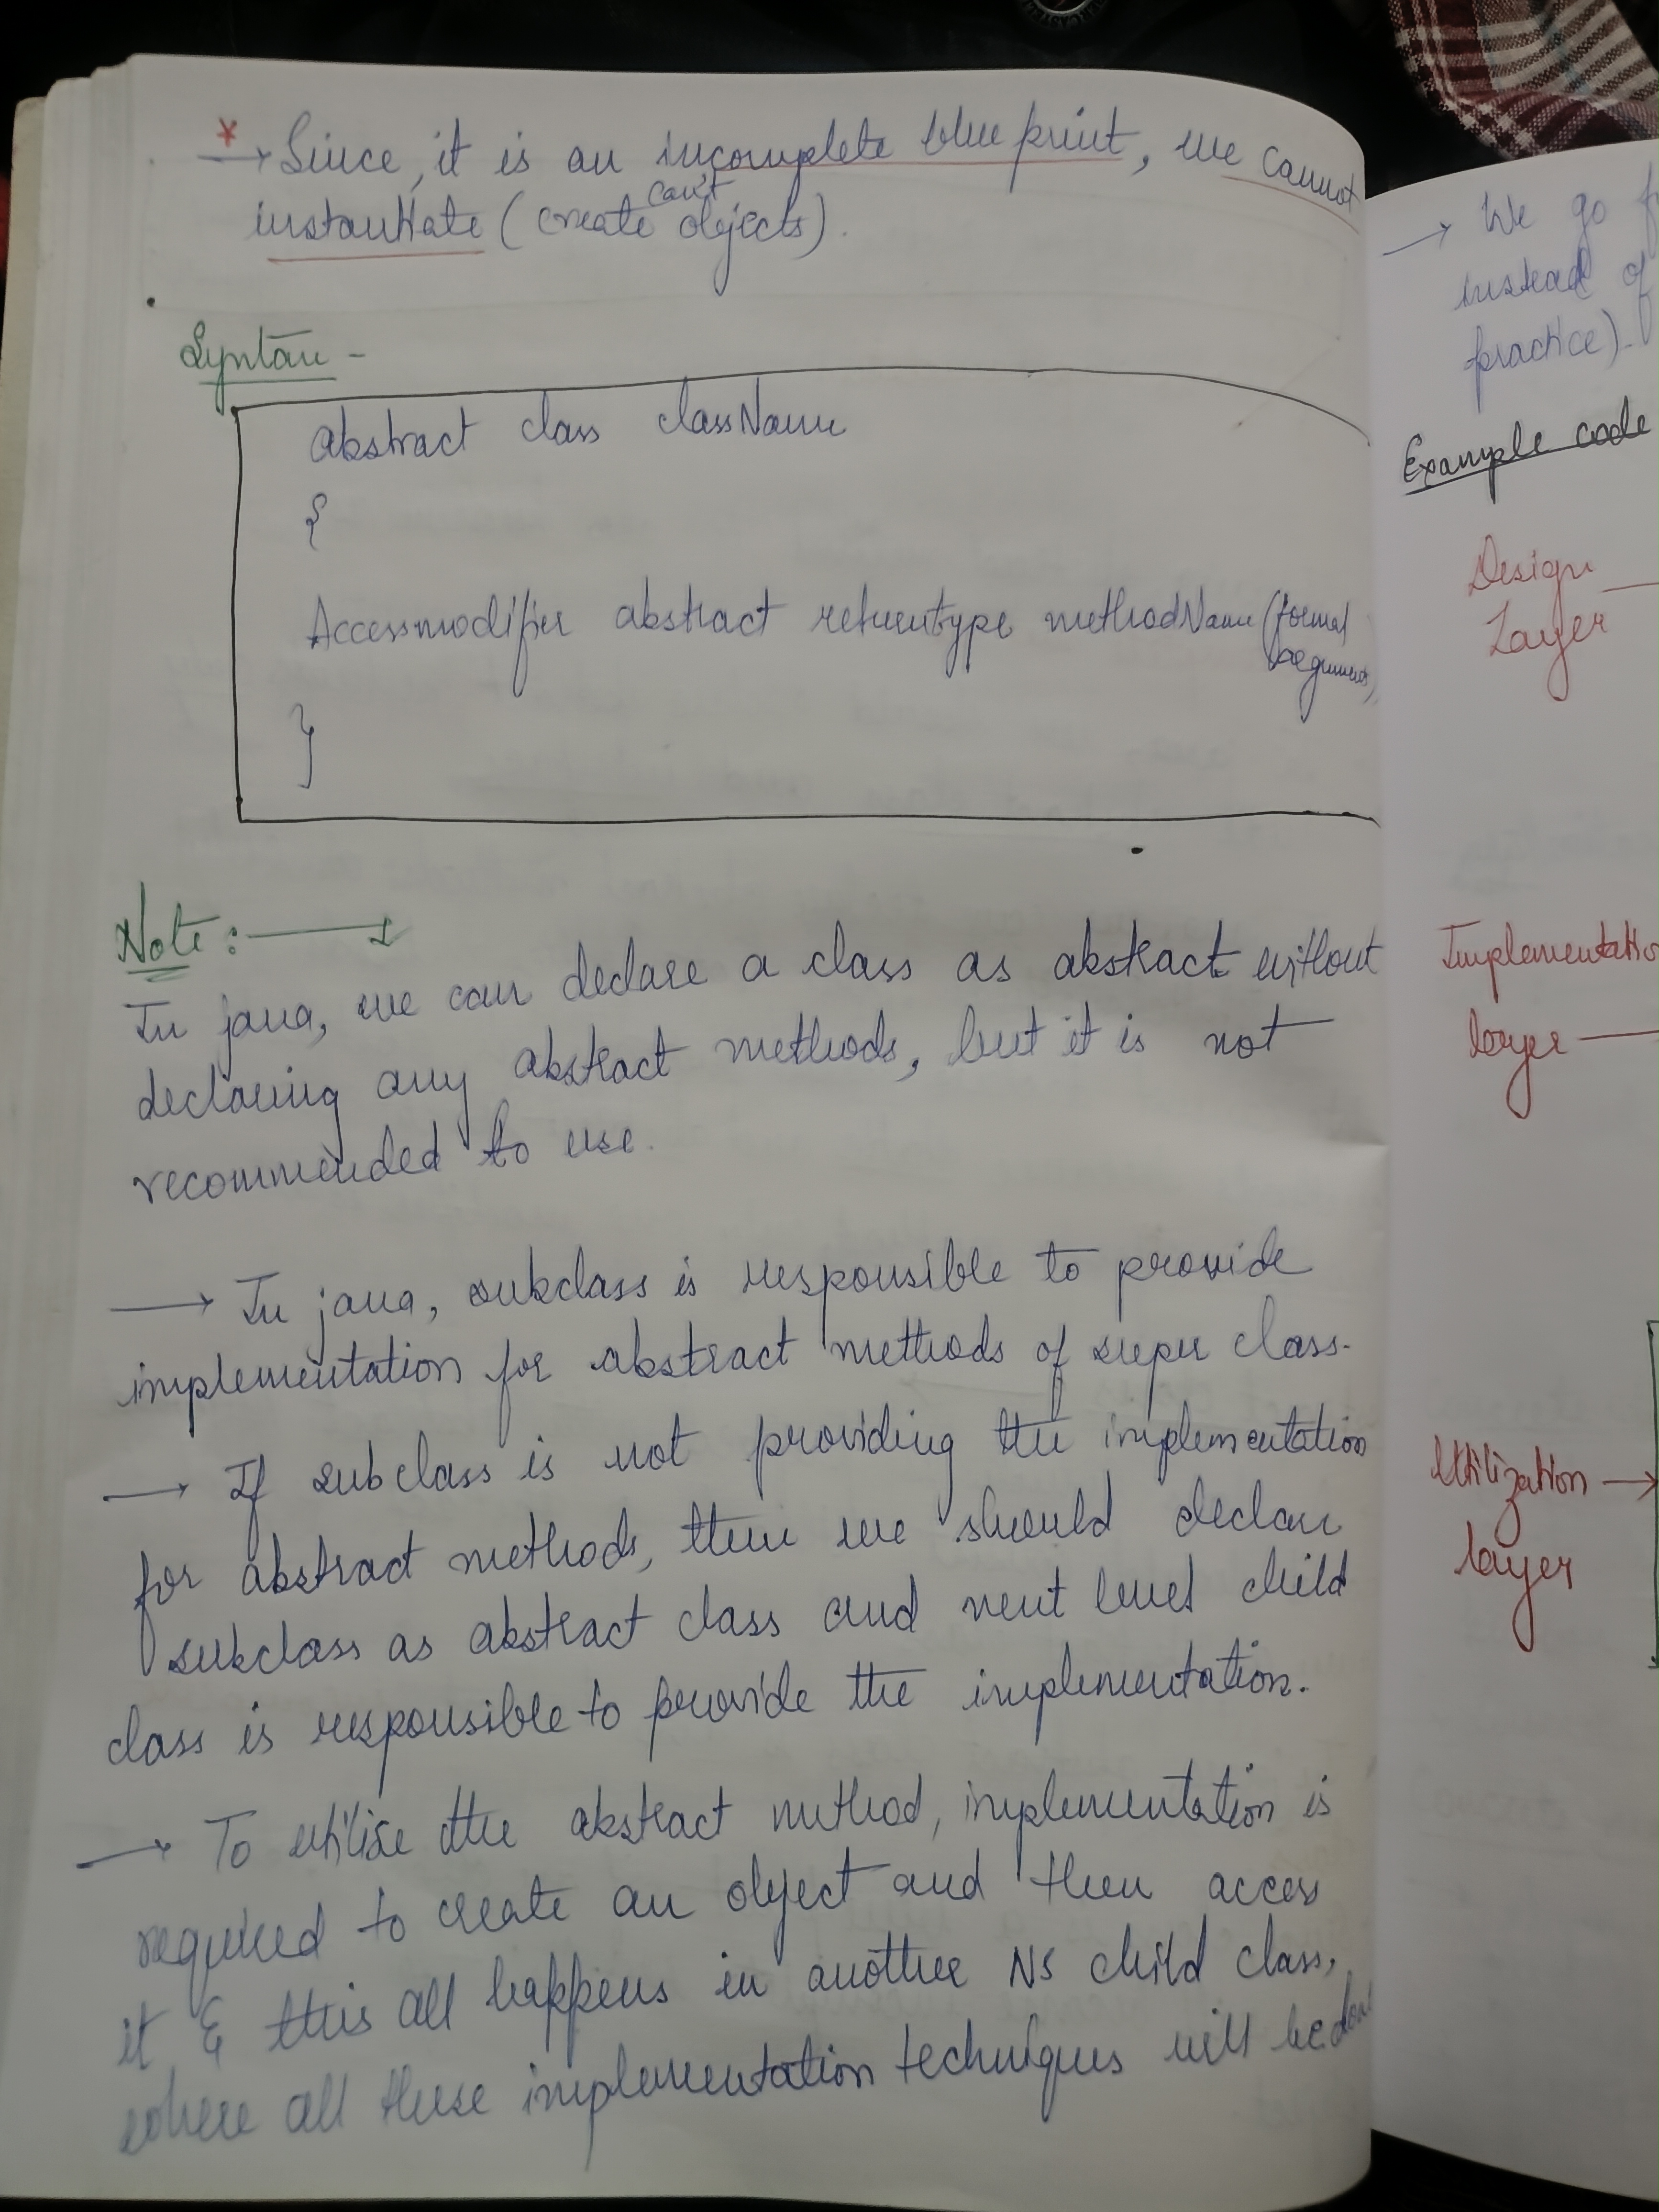 * → Since, it is an incomplete blue print, we cannot
can't
instantiate (create objects).
Syntax -
abstract class className
{
Accessmodifier abstract returntype methodName (formal
arguments)
}
Note: →
In java, we can declare a class as abstract without
declaring any abstract methods, but it is not
recommended to use.
→ In java, subclass is responsible to provide
implementation for abstract methods of super class.
→ If subclass is not providing the implementation
for abstract methods, then we should declare
subclass as abstract class and next level child
class is responsible to provide the implementation.
→ To utilise the abstract method, implementation is
required to create an object and then access
it & this all happens in another NS child class,
where all these implementation techniques will be done
→ We go f
instead of
practice).
Example code
Design
Layer
Implementatio
layer →
Utilization →
layer